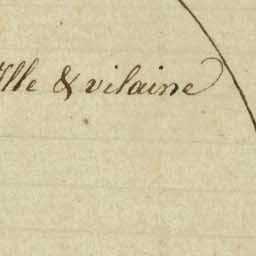 Ille & vilaine